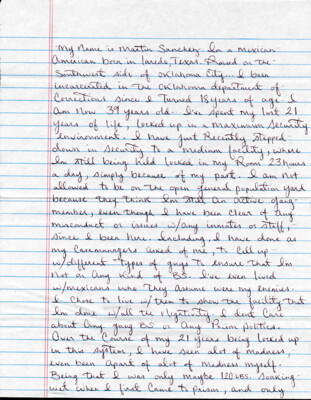 My Name is Martin Sanchez. I'm a Mexican
American born in Laredo, Texas. Raised on the
Southwest side of Oklahoma City... I been
incarcerated in the Oklahoma department of
Corrections since I turned 18 years of age. I
am Now 39 years old. I've spent my last 21
years of life, locked up in a maximum security
environment. I have just Recently stepped
down in security to a medium facility, where
I'm still being held locked in my Room 23 hours
a day, simply because of my past. I am Not
allowed to be on the open general population yard
because they think I'm still an Active gang-
member, even though I have been clear of any
misconduct or issues w/any inmates or staff,
since I been here. Including, I have done as
my Casemanagers asked of me, to cell up
w/different types of guys to ensure that I'm
Not on Any kind of BS. I've even lived
w/mexicans who they assume were my enemies.
I chose to live w/them to show the facility that
I'm done w/all the Negativity. I don't care
about Any gang BS or Any Prison Politics.
Over the Course of my 21 years being locked up
in this system, I have seen alot of madness,
even been Apart of alot of madness myself.
Being that I was only maybe 120 LBS. soaking-
wet when I first Came to prison, and only